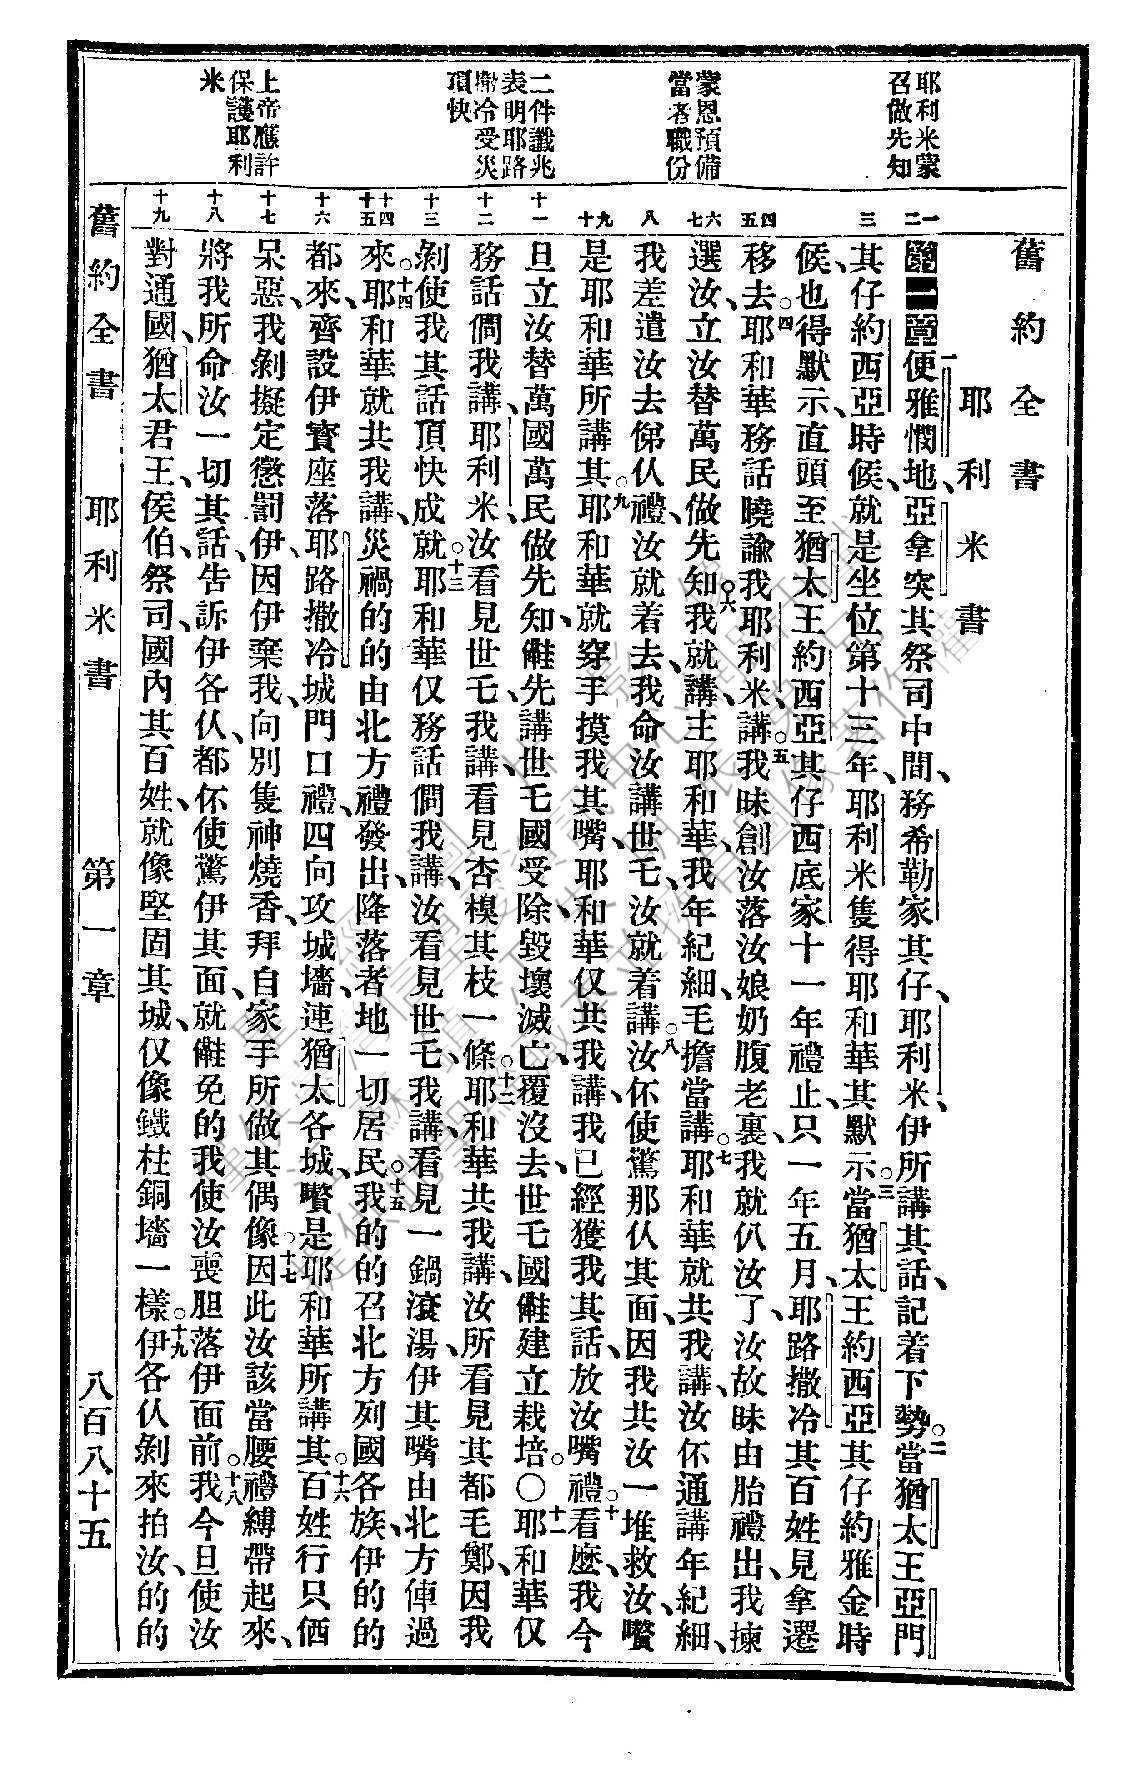 耶利米蒙
召做先知
蒙恩預備
當者職份
二件讖兆
表明耶路
撒冷受災
項快
上帝應許
保護耶利
米
一
二
三
四
五
六
七
八
九
十
十一
十二
十三
十四
十五
十六
十七
十八
十九
舊約全書
耶利米書
第一章一便雅憫地、亞拿突其祭司中間、務希勒家其仔、耶利米、伊所講其話、記着下勢。二當猶太王亞門
其仔約西亞時候、就是坐位第十三年、耶利米隻得耶和華其默示。三當猶太王約西亞其仔約雅金時
候、也得默示、直頭至猶太王約西亞其仔西底家十一年禮止、只一年五月、耶路撒冷其百姓見拿遷
移去。四耶和華務話曉諭我耶利米、講。五我昧創汝落汝娘奶腹老裏、我就仈汝了、汝故昧由胎禮出、我揀
選汝、立汝替萬民做先知。六我就講、主耶和華、我年紀細、毛擔當講。七耶和華就共我講、汝伓通講年紀細、
我差遣汝去俤仈禮、汝就着去、我命汝講世乇、汝就着講。八汝伓使驚那仈其面、因我共汝一堆救汝、嚽
是耶和華所講其。九耶和華就穿手摸我其嘴、耶和華仅共我講、我已經獲我其話、放汝嘴禮。十看麽、我今
旦立汝替萬國萬民做先知、㒰先講世乇國受除毀壞滅亡覆沒去、世乇國㒰建立栽培。〇十一耶和華仅
務話倜我講、耶利米、汝看見世乇、我講、看見杏模其枝一條。十二耶和華共我講、汝所看見其都毛鄭、因我
剝使我其話項快成就。十三耶和華仅務話倜我講、汝看見世乇、我講、看見一鍋滾湯、伊其嘴由北方俥過
來。十四耶和華就共我講、災禍的的由北方禮發出、降落者地一切居民。十五我的的召北方列國各族、伊的的
都來、齊設伊寶座落耶路撒冷城門口禮、四向攻城墻、連猶太各城、嚽是耶和華所講其。十六百姓行只㑚
呆惡、我剝擬定懲罰伊、因伊棄我、向別隻神燒香、拜自家手所做其偶像。十七因此汝該當腰禮縛帶起來、
將我所命汝一切其話、告訴伊各仈、都伓使驚伊其面、就㒰免的我使汝喪胆落伊面前。十八我今旦使汝
對通國、猶太君王、侯伯、祭司、國內其百姓、就像堅固其城、仅像鐵柱銅墻一樣。十九伊各仈剝來拍汝、的的
舊約全書 耶利米書 第一章 八百八十五